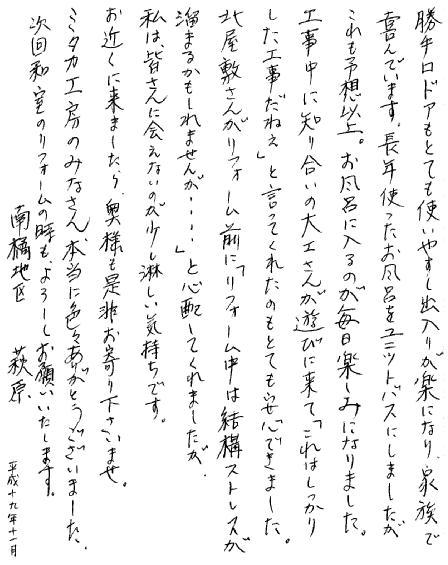 勝手口ドアもとても使いやすし出入りが楽になり、家族で
喜んでいます。長年使ったお風呂をユニットバスにしましたが
これも予想以上。お風呂に入るのが毎日楽しみになりました。
工事中に知り合いの大工さんが遊びに来て「これはしっかり
した工事だねぇ」と言ってくれたのもとても安心できました。
北屋敷さんがリフォーム前に「リフォーム中は結構ストレスが
溜まるかもしれませんが・・・・」と心配してくれましたが、
私は、皆さんに会えないのが少し淋しい気持ちです。
お近くに来ましたら、奥様も是非お寄り下さいませ。
ミタカ工房のみなさん、本当に色々ありがとうございました。
次回和室のリフォームの時も、よろしくお願いいたします。
南橘地区 萩原
平成十九年十一月